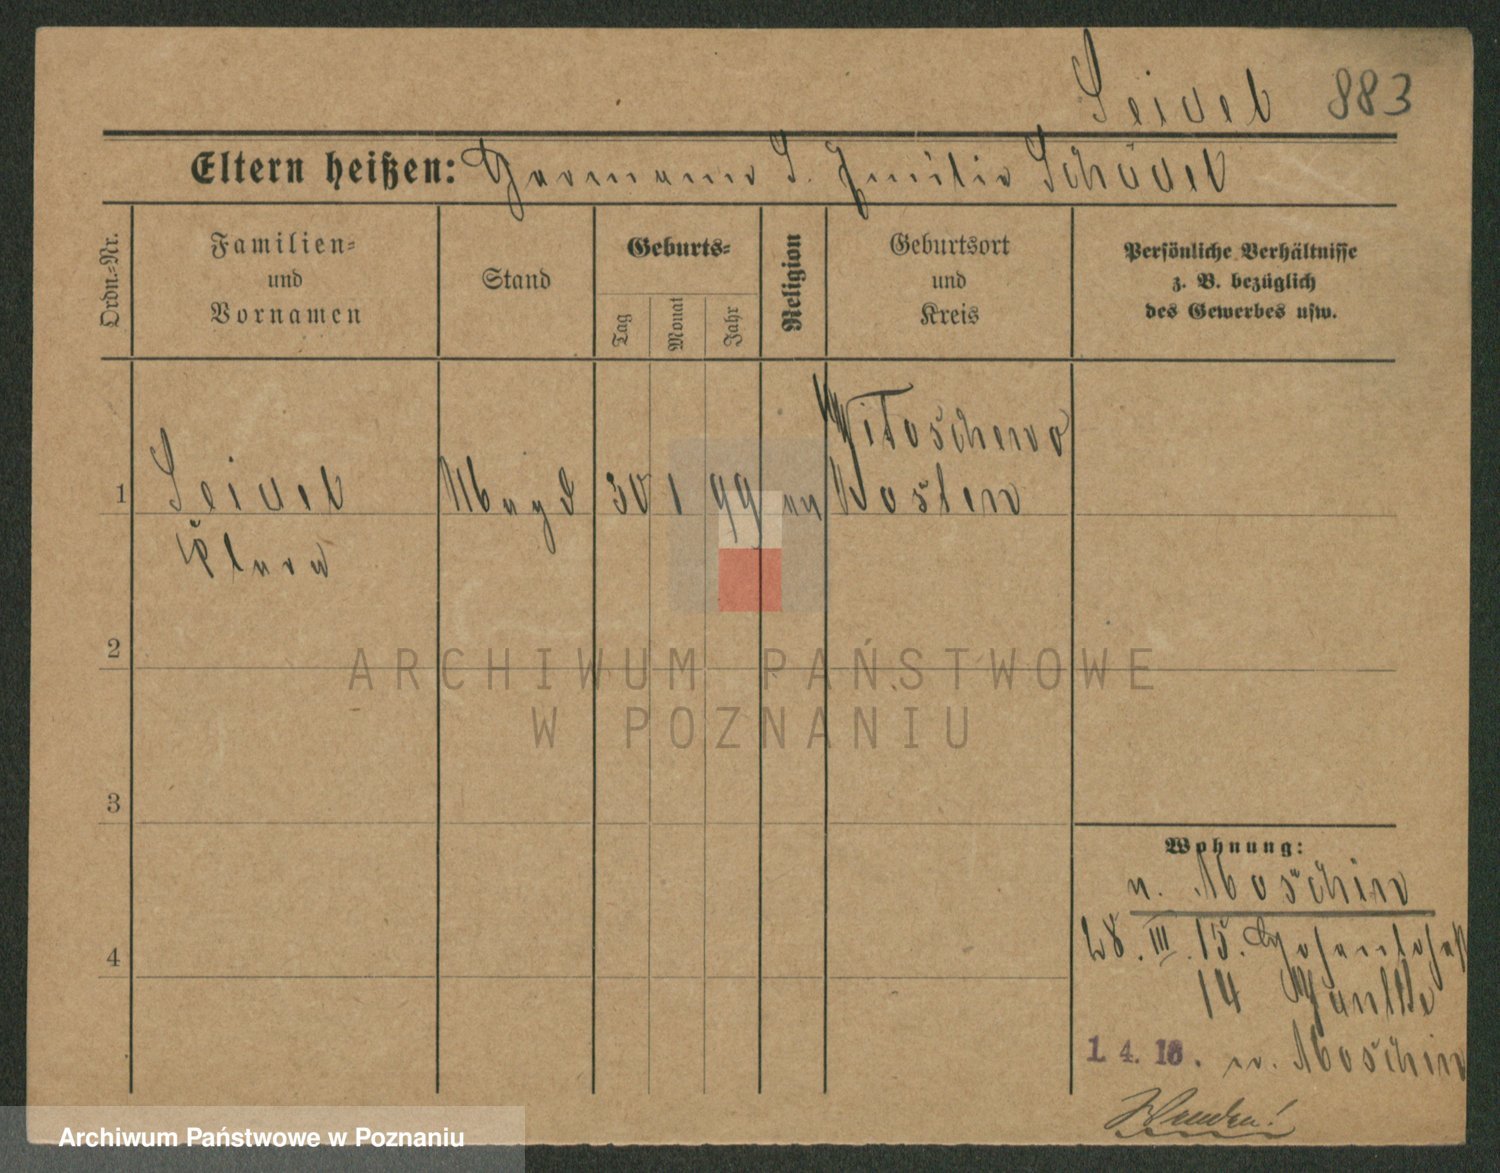 Seidel 883
Eltern heißen: Hermann S. Emilie Schädel
Ordn.-Nr.
Familien-
und
Vornamen
Stand
Geburts-
Tag
Monat
Jahr
Religion
Geburtsort
und
Kreis
Persönliche Verhältnisse
z. B. bezüglich
des Gewerbes usw.
1
Seidel
Klara
Magd
30 1 99
ev
Kosten
2
3
4
Wohnung:
n. Moschin
28. III. 15.
14
1. 4. 16. n. Moschin
Wenden!
ARCHIWUM PAŃSTWOWE
W POZNANIU
Archiwum Państwowe w Poznaniu